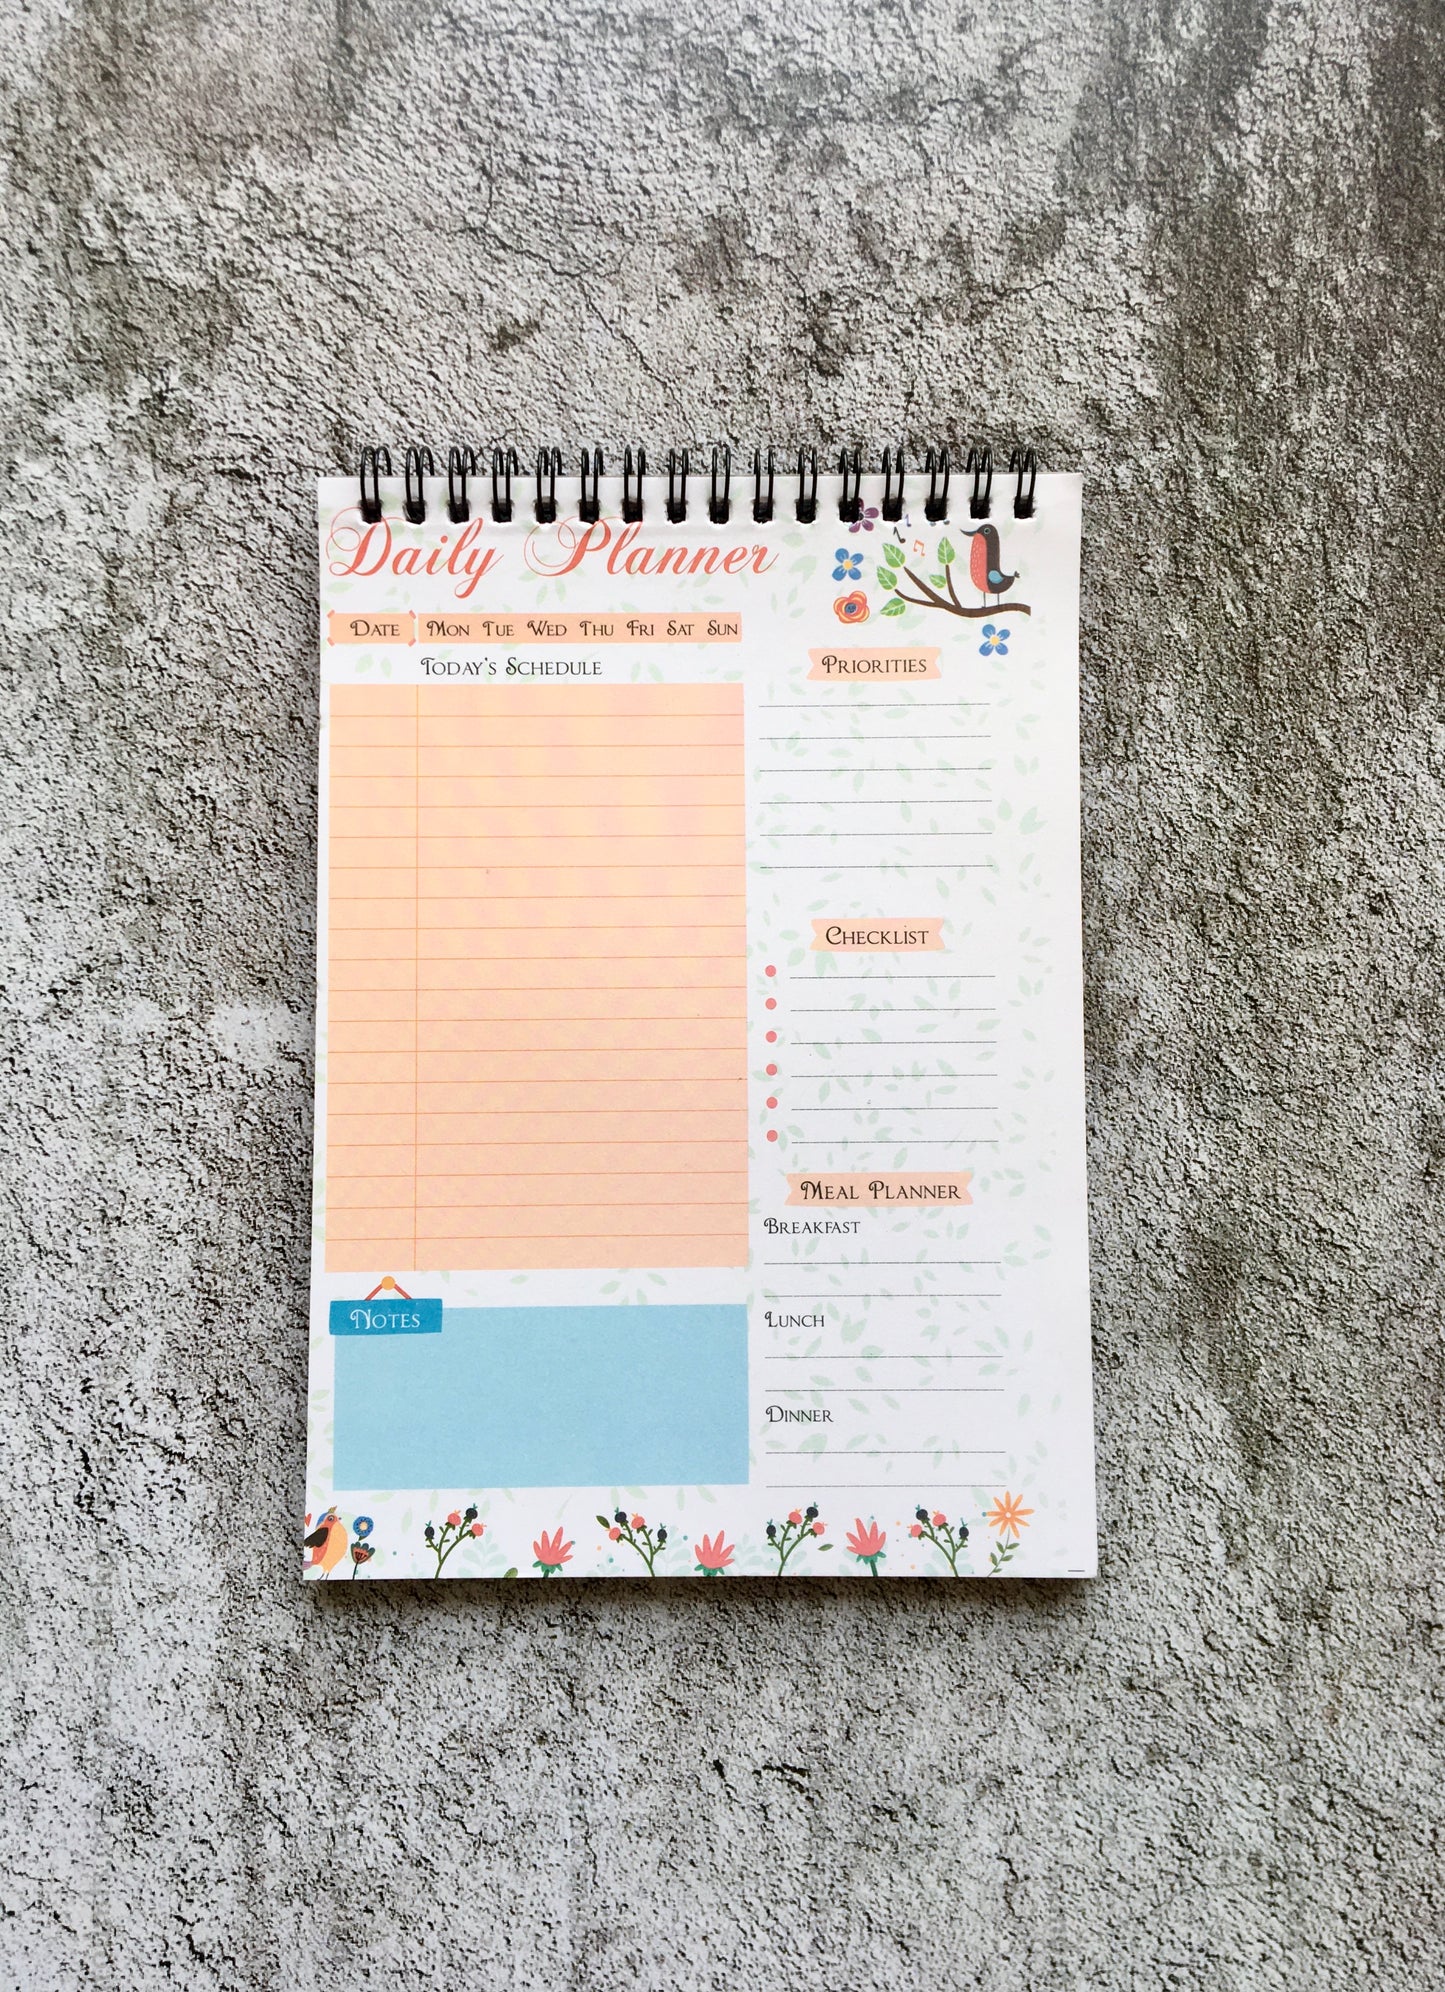 Daily Planner
Date Mon Tue Wed Thu Fri Sat Sun
Today's Schedule
Priorities
Checklist
Meal Planner
Breakfast
Lunch
Dinner
Notes